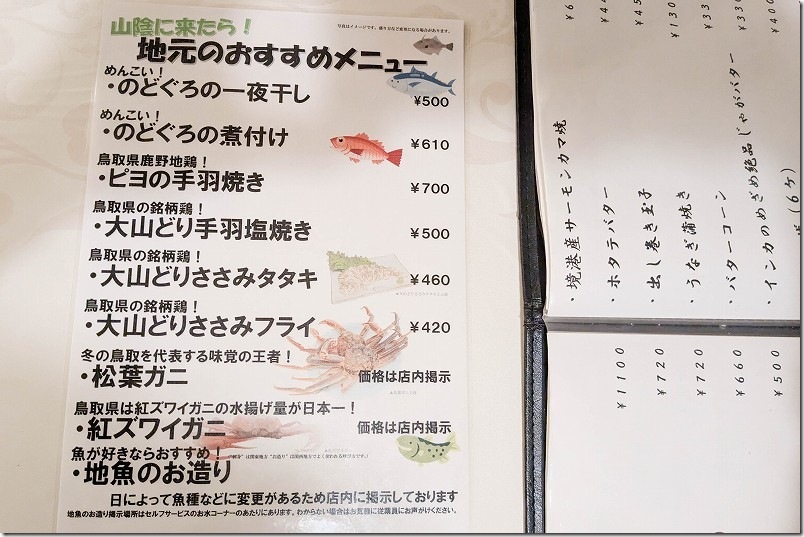 山陰に来たら!
写真はイメージです。盛り方など変更になる場合があります。
地元のおすすめメニュー
めんこい!
・のどぐろの一夜干し ¥500
めんこい!
・のどぐろの煮付け ¥610
鳥取県鹿野地鶏!
・ピヨの手羽焼き ¥700
鳥取県の銘柄鶏!
・大山どり手羽塩焼き ¥500
鳥取県の銘柄鶏!
・大山どりささみタタキ ¥460
鳥取県の銘柄鶏!
・大山どりささみフライ ¥420
冬の鳥取を代表する味覚の王者!
・松葉ガニ 価格は店内掲示
鳥取県は紅ズワイガニの水揚げ量が日本一!
・紅ズワイガニ 価格は店内掲示
魚が好きならおすすめ!
・地魚のお造り
日によって魚種などに変更があるため店内に掲示しております
地魚のお造り掲示場所はセルフサービスのお水コーナーのあたりにあります。わからない場合はお気軽に従業員にお声がけください。
・境港産サーモンカマ焼
・ホタテバター
・出し巻き玉子
・うなぎ蒲焼き
・バターコーン
・インカのめざめ絶品じゃがバター
(6ケ)
¥1100
¥720
¥720
¥660
¥500